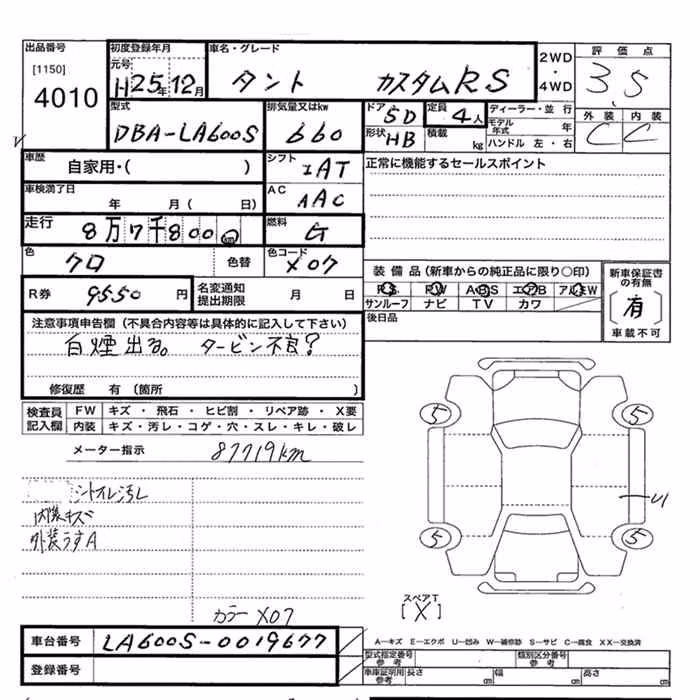 出品番号 初度登録年月 車名・グレード 2WD 評価点
[1150] 元号
4010 H25年12月 タント カスタムRS ・ 4WD 3.5
型式 排気量又はkw ドア 5D 定員 4人 ディーラー・並行 外装 内装
DBA-LA600S 660 形状 HB 積載 kg モデル年式 年 C C
ハンドル 左・右
車歴 自家用・( ) シフト IAT 正常に機能するセールスポイント
車検満了日 年 月( 日) AC AAC
走行 8万7千800km 燃料 G
色 クロ 色替 色コード X07 装備品(新車からの純正品に限り○印) 新車保証書の有無
R券 9550円 名変通知提出期限 月 日 PS PW ABS エアB アルミW [有]
サンルーフ ナビ TV カワ 車載不可
後日品
注意事項申告欄(不具合内容等は具体的に記入して下さい)
白煙出る。 タービン不良?
修復歴 有(箇所 )
検査員記入欄 FW キズ・飛石・ヒビ割・リペア跡・X要
内装 キズ・汚レ・コゲ・穴・スレ・キレ・破レ
メーター指示 87719km
5 5
シートイレ汚レ
内装キズ U1
外装うすA
5 5
スペアT
[X]
カラーX07
車台番号 LA600S-0019677 A―キズ E―エクボ U―凹み W―補修跡 S―サビ C―腐食 XX―交換済
型式指定番号 参考 類別区分番号 参考
登録番号 車庫証明用 参考 長さ cm 幅 cm 高さ cm